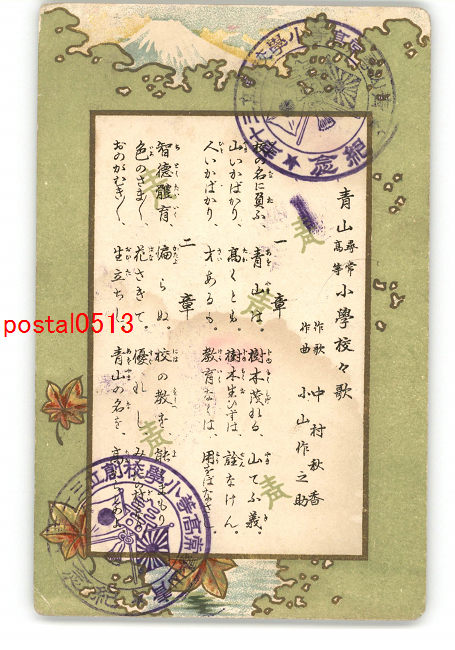 青山尋常高等小學校々歌
作歌 中村秋香
作曲 小山作之助
一章
校の名に負ふ、青山は。樹木茂れる、山てふ義。
山いかばかり、高くとも。樹木生ひずは、詮なけん。
人いかばかり、才あるも。教育なくは、用をばな
二章
智德體育、偏らぬ。校の教を
色のさま〲、花さきて。優れし
おのがむき〱、生立ちし。青山の名を、
postal0513
紀念
小學校創立三
紀念